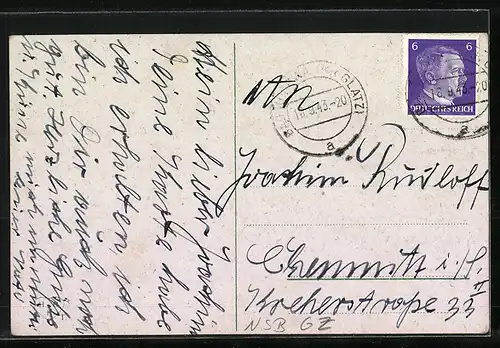 Mein lieber Joachim
Deine Karte habe
ich erhalten ich
bin Dir auch noch
gut Herzliche Grüße
6 6
DEUTSCHES REICH
GLATZ)
16.8.43-20
a
16.8.43-20
a
An
Joachim Rudloff
Chemnitz i/S. II
Kreherstraße 33
NSB GZ